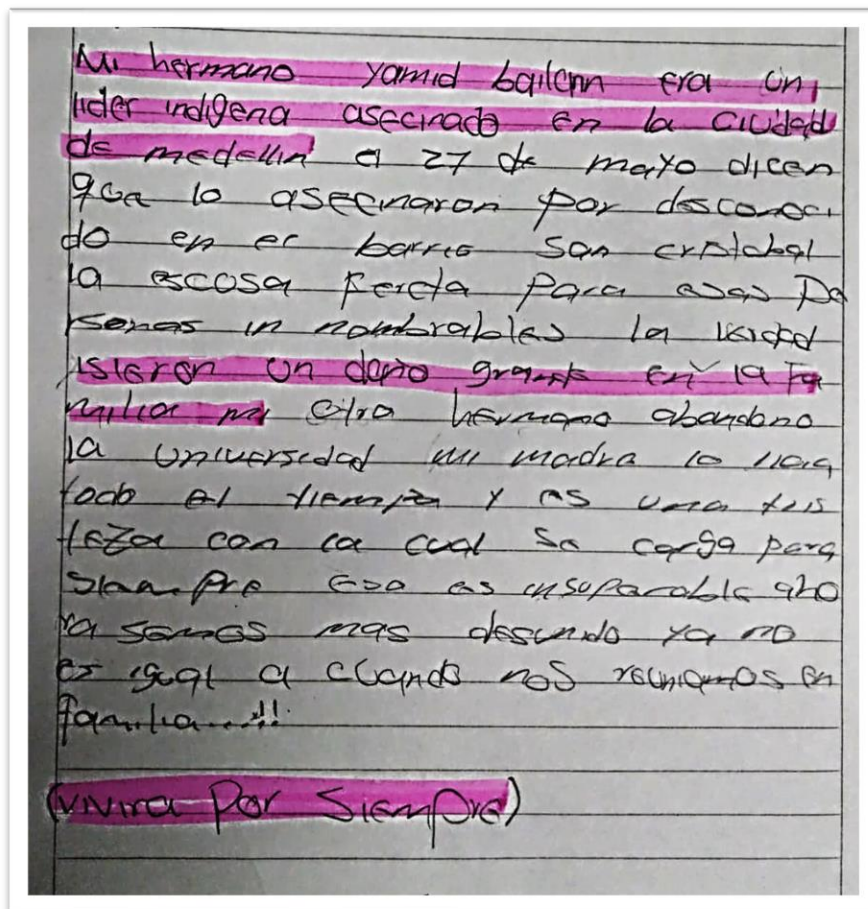 Mi hermano yamid bailarin era un
lider indigena asecinado en la ciudad
de medellin el 27 de mayo dicen
que lo asecinaron por desconoci
do en el barrio san cristobal
la escosa para esas pe
rsonas in nombrables la verdad
isieron un daño grande en la fa
milia mi otro hermano abandono
la universidad mi madre lo llora
todo el tiempo y es una tris
teza con la cual se carga para
siempre eso es insuparable aho
ra somos mas desunido ya no
es igual a cuando nos reuniamos en
familia...!!
(vivira por siempre)